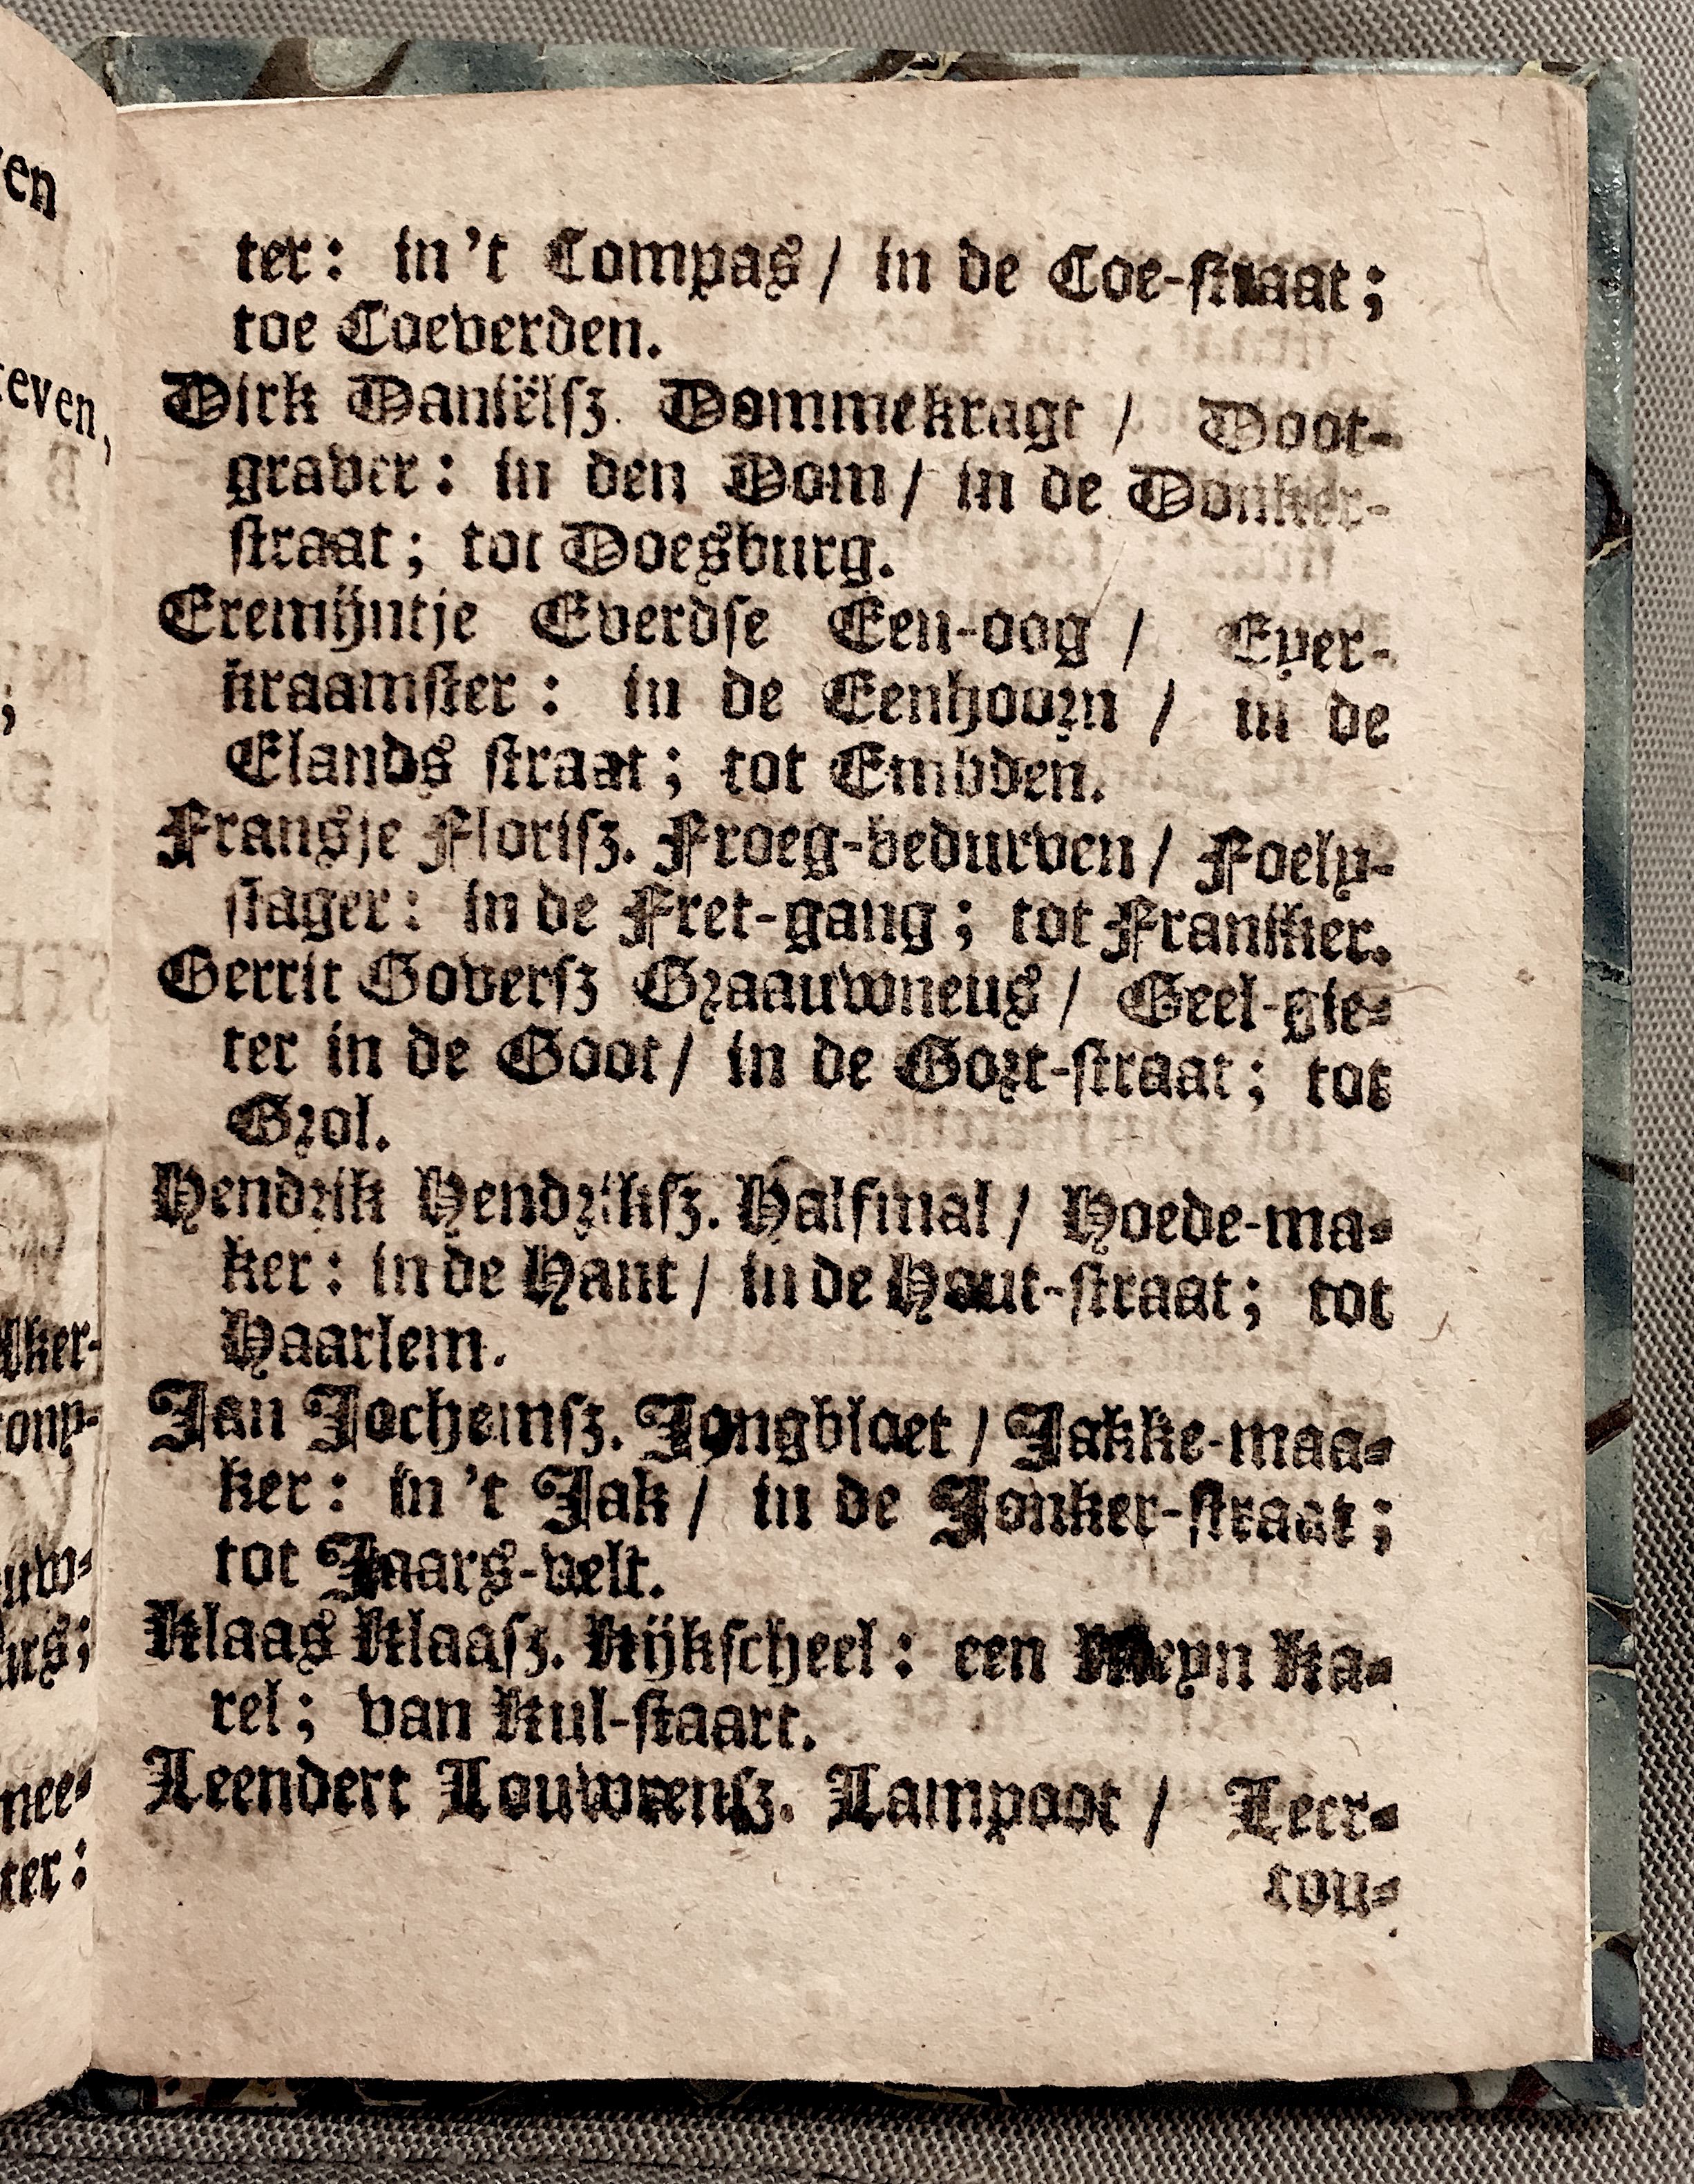 ter: in 't Compas / in de Coe-straat;
toe Coeverden.
Dirk Daniëlsz. Dommekragt / Doot-
graver: in den Dom / in de Donker-
straat; tot Doesburg.
Eremijntje Everdse Een-oog / Eyer-
kraamster: in de Eenhoorn / in de
Elands straat; tot Embden.
Fransje Florisz. Froeg-bedurven / Foely-
slager: in de Fret-gang; tot Franiker.
Gerrit Goversz Graauwneus / Geel-gie-
ter in de Goot / in de Gort-straat; tot
Grol.
Hendrik Hendriksz. Halfmal / Hoede-ma-
ker: in de Hant / in de Hout-straat; tot
Haarlem.
Jan Jochemsz. Jongbloet / Jakke-maa-
ker: in 't Jak / in de Jonker-straat;
tot Jaars-velt.
Klaas Klaasz. Kijkscheel: een Kleyn Ka-
rel; van Kul-staart.
Leendert Louwrensz. Lampoot / Leer-
tou-
en
even,
;
ker-
ony-
uw-
urs;
nee-
ter: